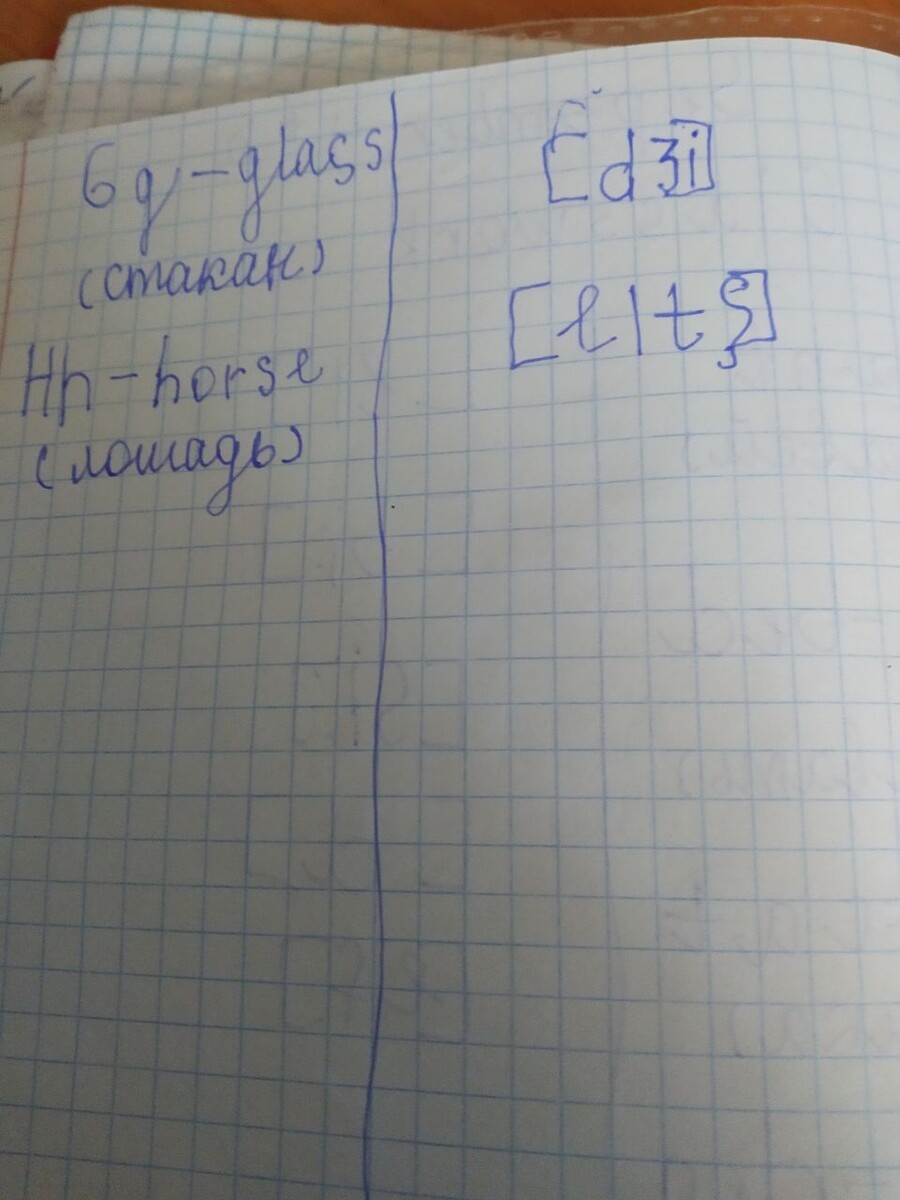 Gg - glass
[dʒi]
(стакан)
[eltʃ]
Hh - horse
(лошадь)